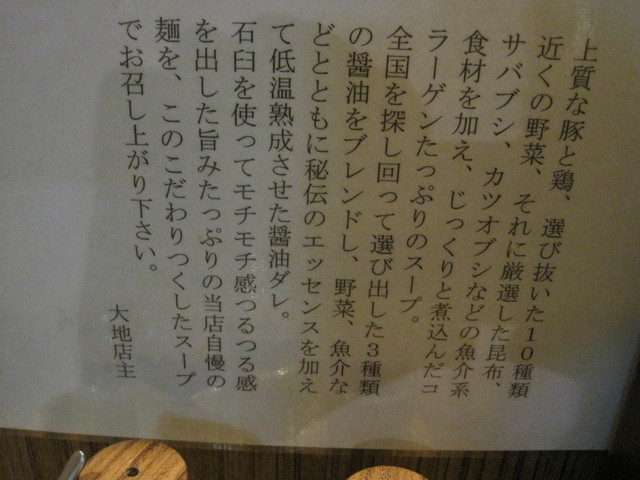 上質な豚と鶏、選び抜いた１０種類
近くの野菜、それに厳選した昆布、
サバブシ、カツオブシなどの魚介系
食材を加え、じっくりと煮込んだコ
ラーゲンたっぷりのスープ。
全国を探し回って選び出した３種類
の醤油をブレンドし、野菜、魚介な
どとともに秘伝のエッセンスを加え
て低温熟成させた醤油ダレ。
石臼を使ってモチモチ感つるつる感
を出した旨みたっぷりの当店自慢の
麺を、このこだわりつくしたスープ
でお召し上がり下さい。
大地店主